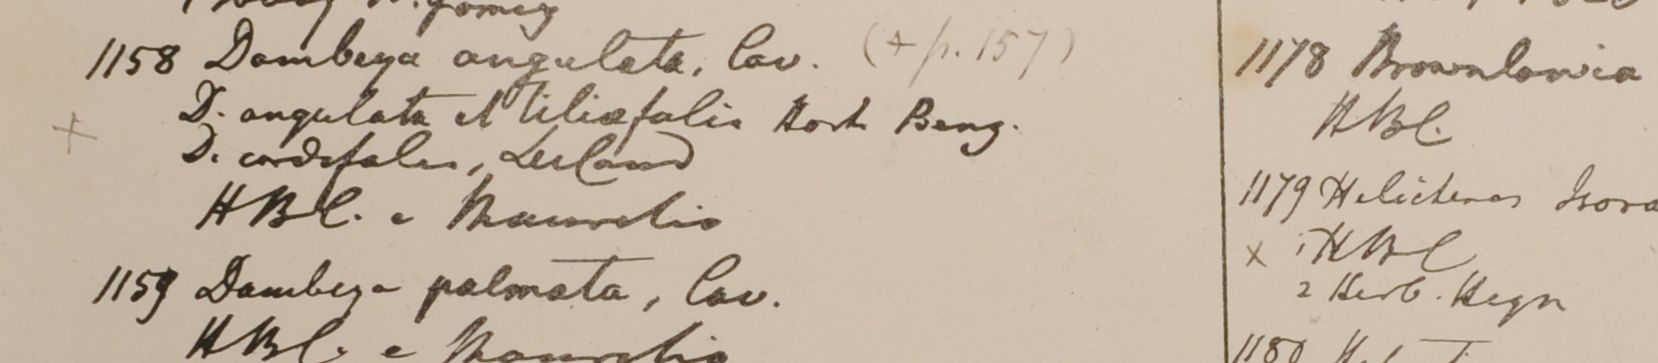 1158 Dombeya angulata, Cav. (+ p. 157)
D. angulata et tiliaefolia Hort Beng.
D. cordifolia,
HBC. e Mauritio
1159 Dombeya palmata, Cav.
HBC. e Mauritio
1178 Brownlowia
HBC.
1179 Helicteres Isora
x 1 HBC
2 Herb. Heyn
1180